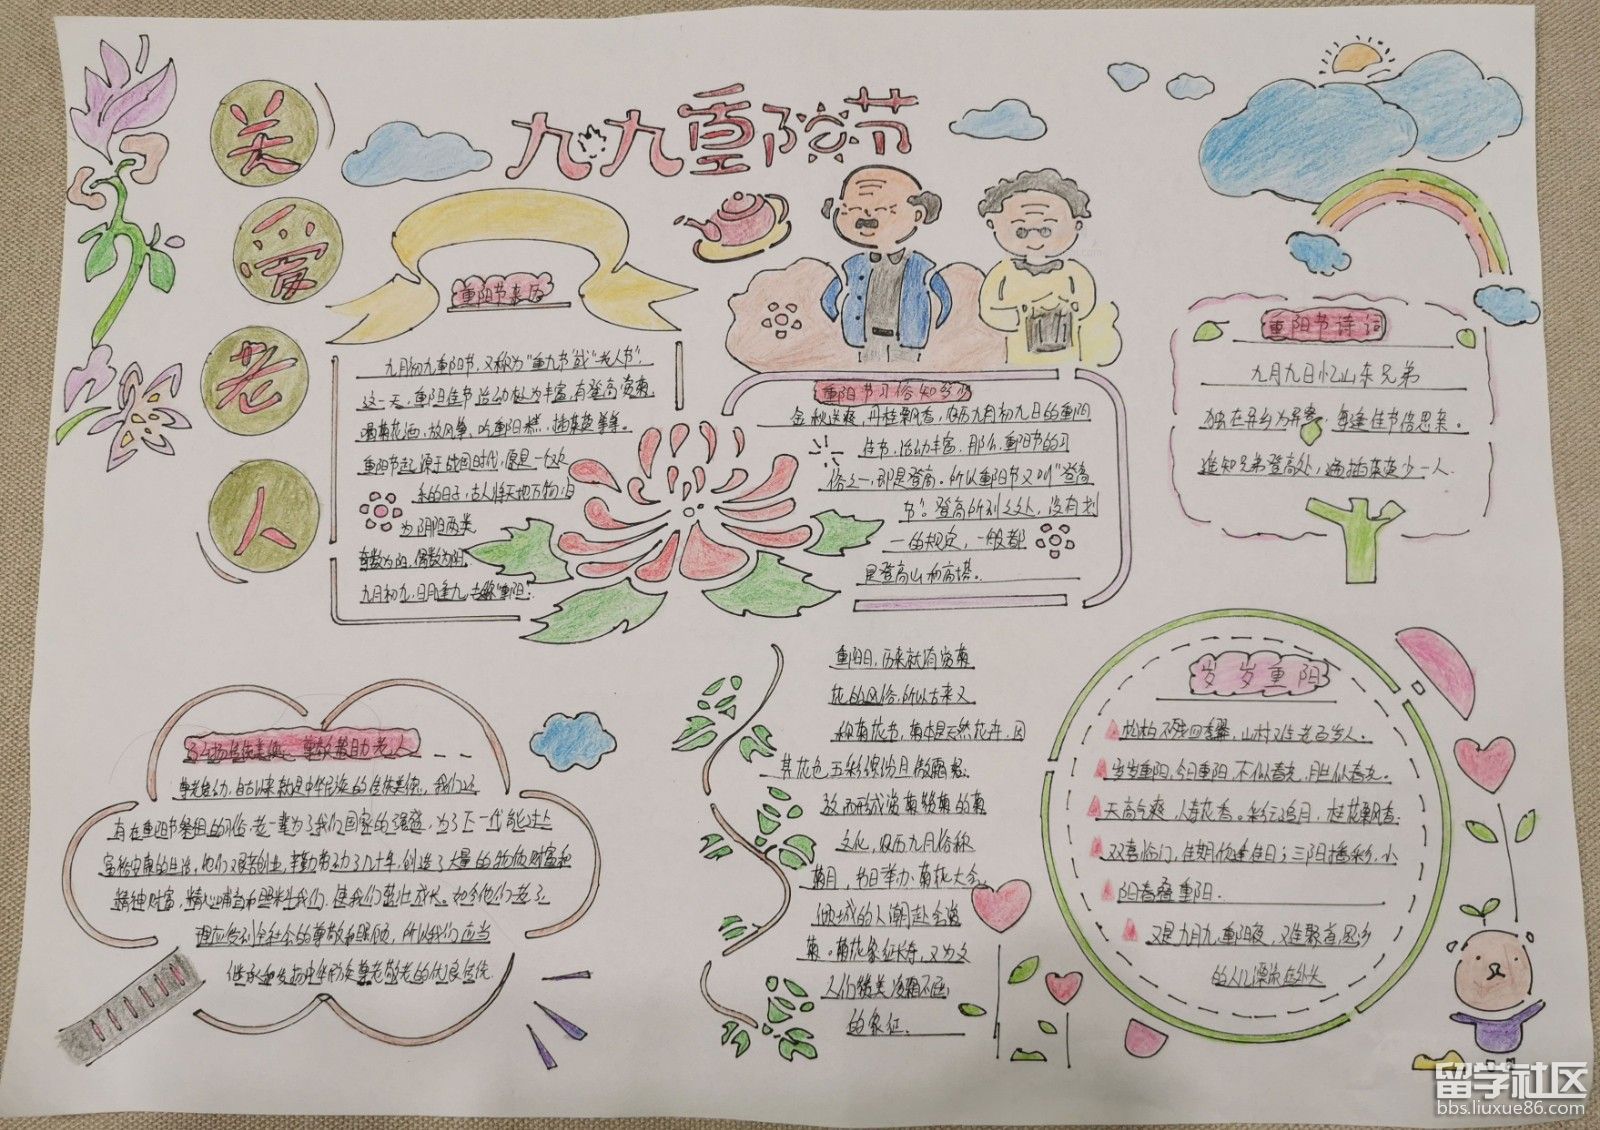 九九重阳节
关
爱
老
人
重阳节来历
九月初九重阳节,又称为"重九节"或"老人节"。
这一天,重阳佳节活动极为丰富,有登高赏菊、
喝菊花酒,放风筝,吃重阳糕,插茱萸等等。
重阳节起源于战国时代,原是一个欢
乐的日子,古人将天地万物归
为阴阳两类
奇数为阳,偶数为阴,
九月初九,日月逢九,
重阳节习俗知多少
金秋送爽,丹桂飘香,农历九月初九日的重阳
佳节,活动丰富,那么,重阳节的习
俗之一,即是登高。所以重阳节又叫"登高
节"。登高所到之处,没有划
一的规定,一般都
是登高山和高塔。
重阳节诗词
九月九日忆山东兄弟
独在异乡为异客,每逢佳节倍思亲。
遥知兄弟登高处,遍插茱萸少一人。
尊敬帮助老人
尊老爱幼,自古以来就是中华民族的传统美德,我们还
有在重阳节祭祖的习俗,老一辈为了我们国家的强盛,为了下一代能过上
富裕安康的生活,他们艰苦创业,辛勤劳动了几十年,创造了大量的物质财富和
精神财富,精心哺育和照料我们,使我们茁壮成长。如今他们老了
理应受到全社会的尊敬和照顾,所以我们应当
继承和发扬中华民族尊老敬老的优良传统
重阳日,历来就有赏菊
花的风俗,所以古来又
称菊花节,菊本是天然花卉,因
其花色五彩缤纷且傲霜怒
放而形成赏菊颂菊的菊
文化,农历九月俗称
菊月,节日举办菊花大会
倾城的人潮赴会赏
菊。菊花象征长寿,又为文
人们赞美凌霜不屈
的象征、
岁岁重阳
松柏不残四季翠,山村难老百岁人。
岁岁重阳,今日重阳,不似春光,胜似春光。
天高气爽,人寿花香。彩云追月,桂花飘香;
双喜临门,佳期伏逢佳日;三阳播彩,小
阳春叠重阳.
又是九月九重阳夜,难聚首,思乡
的人儿漂流在外头
留学社区
bbs.liuxue86.com